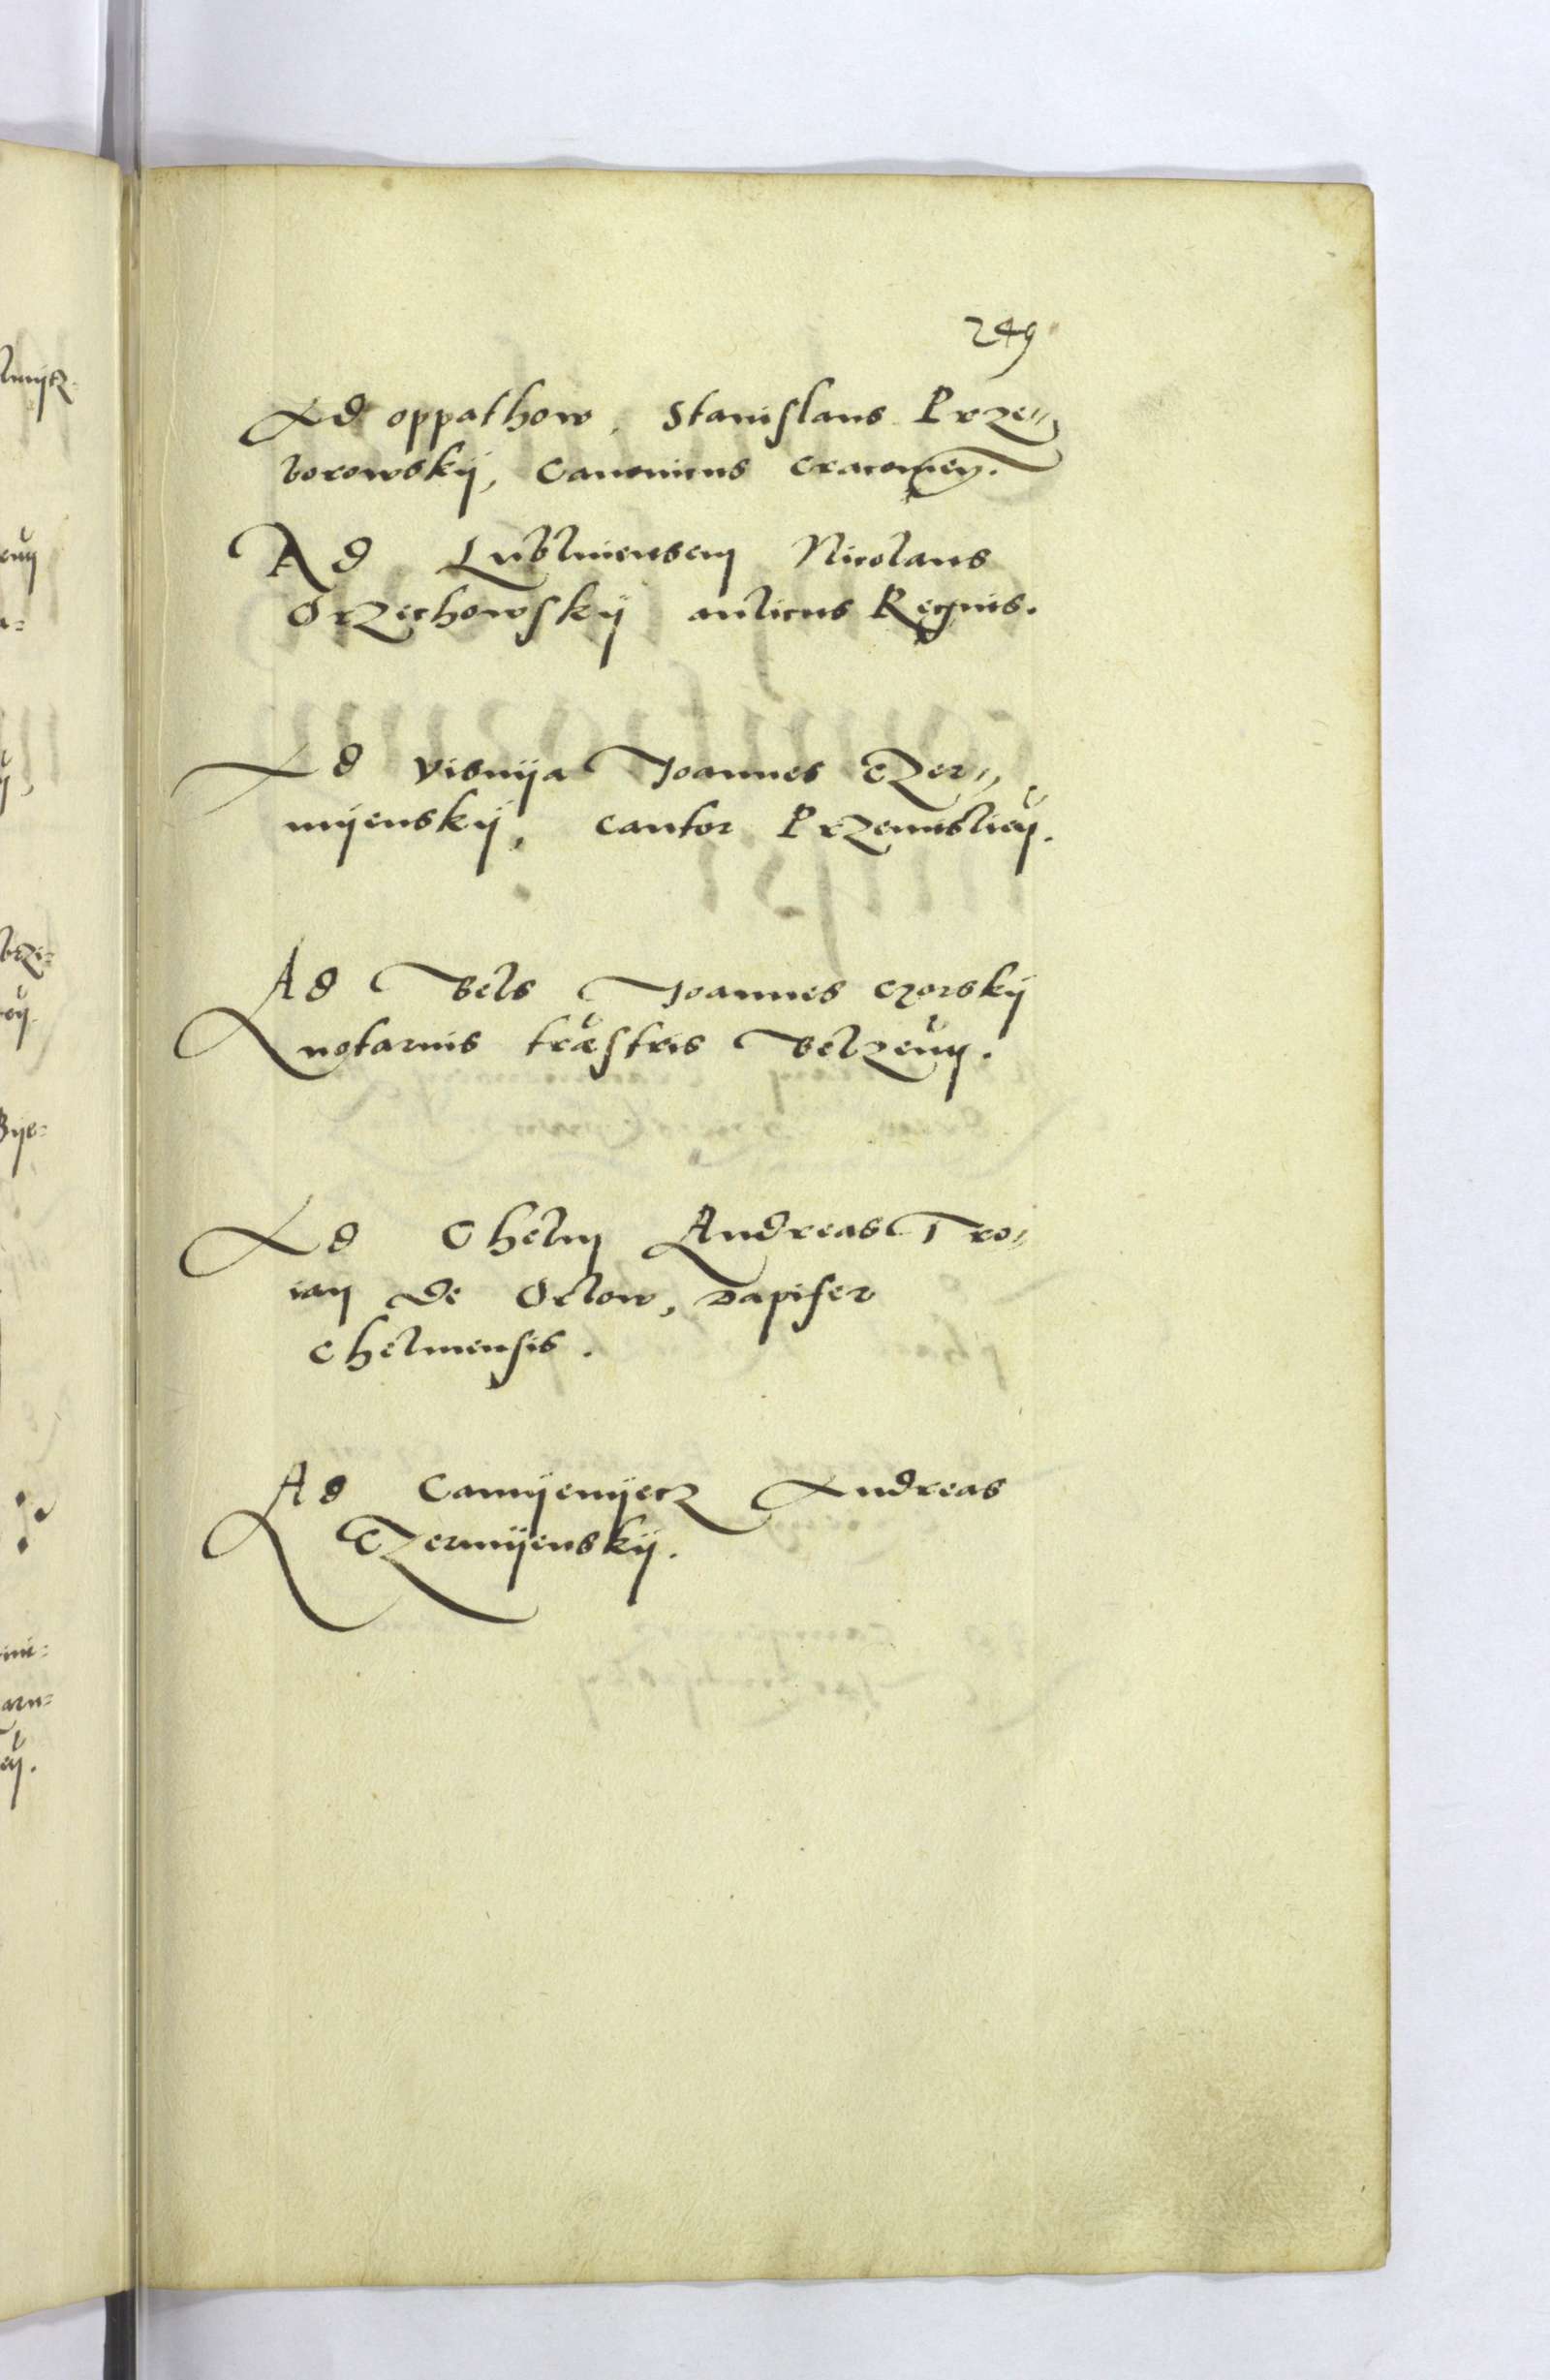 249
Ad oppathow, Stanislaus Prze„
borowskÿ, Canonicus Cracovien.
Ad Lubliniensem Nicolaus
Orzechowskÿ aulicus Regius.
Ad Visnÿa Joannes Czer„
mÿenskÿ, Cantor Przemislien.
Ad Bels Joannes czorskÿ
notarius traestris Belzen.
Ad Chelm Andreas Tro„
ian de Orlow, Dapifer
Chelmensis.
Ad Camÿenÿecz Andreas
Czermÿenskÿ.